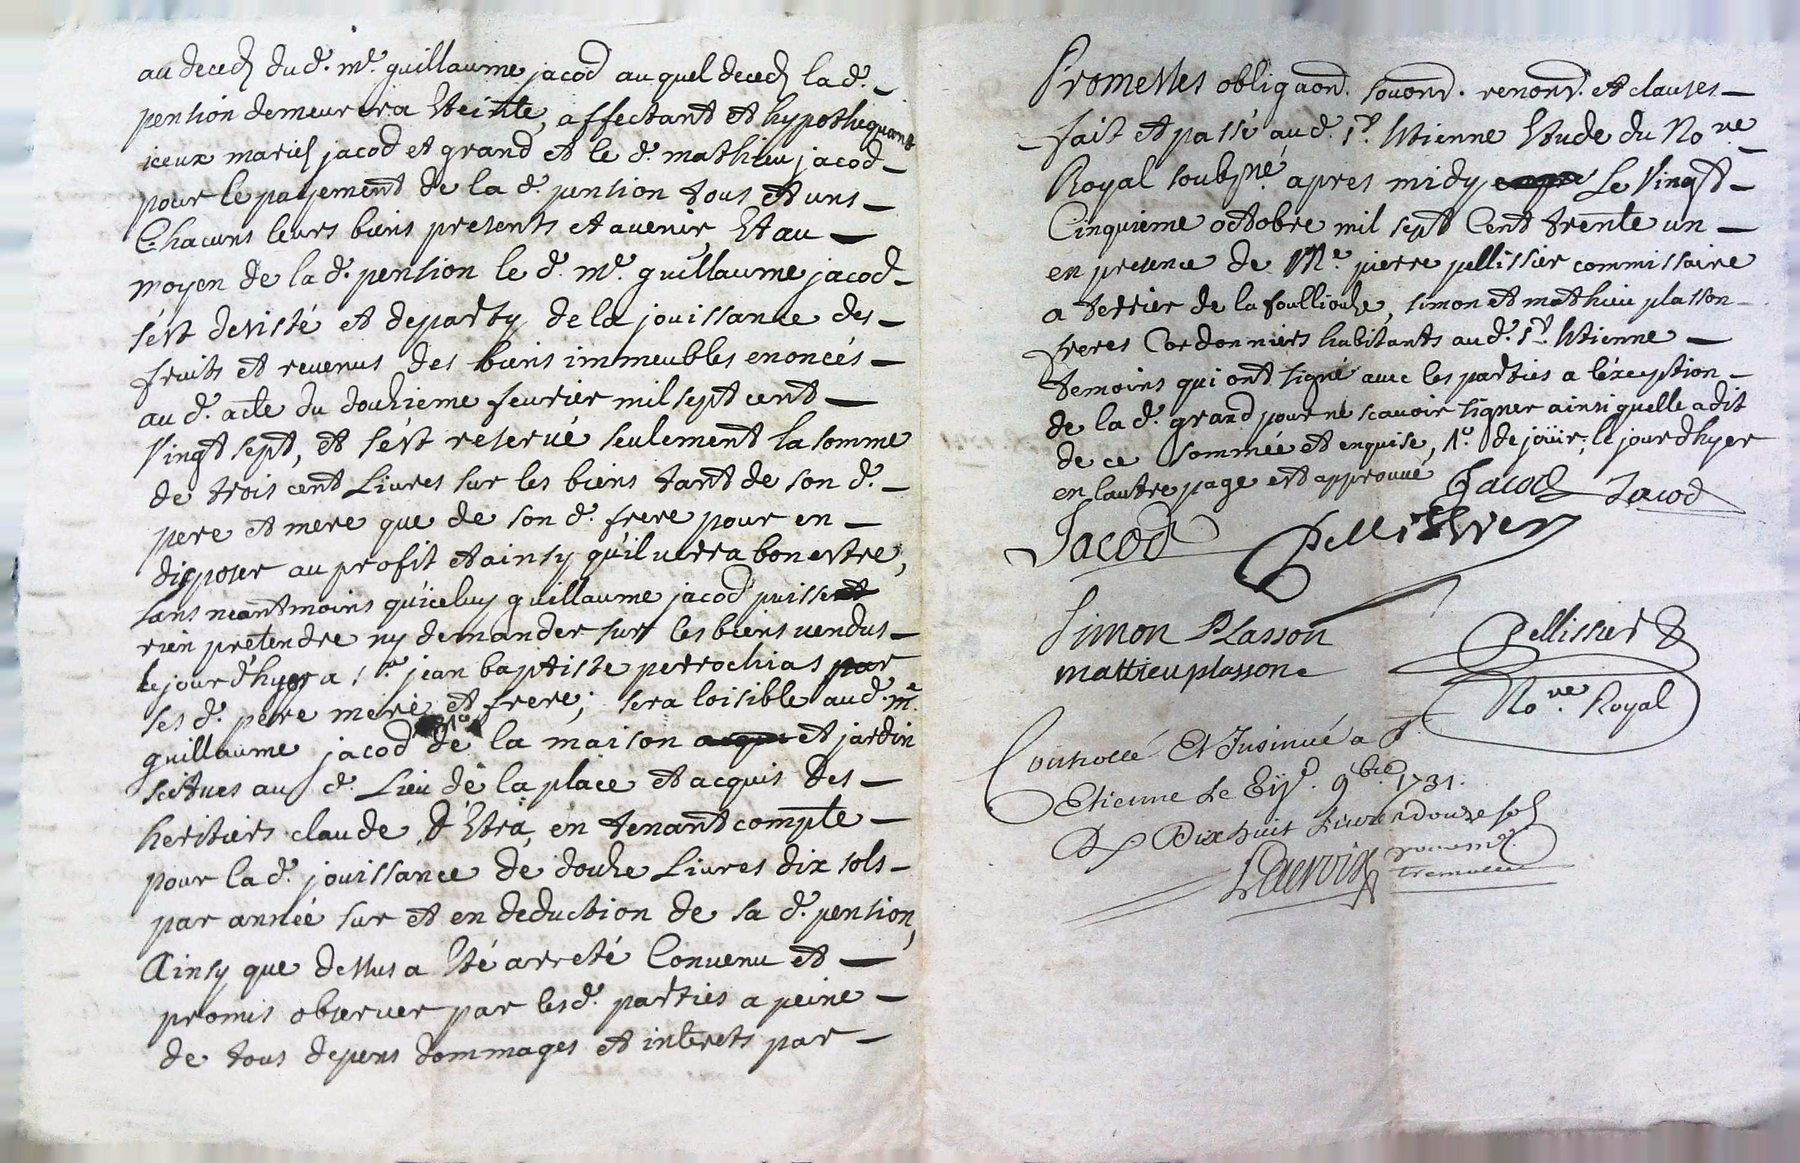 au deced du d. me. guillaume jacod auquel deced la d.
pention demeurera Eteinte, affectant et hypothequant
iceux mariés jacod et grand et le d. mathieu jacod
pour le payement de la d. pention tous et uns
Chacuns leurs biens presents et avenir, Et au
moyen de la d. pention le d. me. guillaume jacod
s'est desisté et departy de la jouissance des
fruits et revenus des biens immeubles enoncés
au d. acte du douzieme fevrier mil sept cent
Vingt sept, et s'est reservé seulement la somme
de trois cent Livres sur les biens tant de son d.
pere et mere que de son d. frere pour en
disposer au profit et ainsy qu'il verra bon estre,
sans neantmoins qu'iceluy guillaume jacod puisse
rien pretendre ny demander sur les biens vendus
le jour d'hyer a sr. jean baptiste perrochias par
ses d. pere mere et frere; sera loisible au d. me.
guillaume jacod de la maison et jardin
scitues au d. Lieu de la place et acquis des
heritiers claude d'Etra, en tenant compte
pour la d. jouissance de douze Livres dix sols
par année sur et en deduction de sa d. pention,
Ainsy que dessus a Eté arreté Convenu et
promis observer par les d. parties a peine
de tous depens dommages et interets par
Promesses obligaons. souons. renons. et clauses
fait et passé au d. St. Etienne Etude du Nore.
Royal soubsné. apres midy Le Vingt
Cinquieme octobre mil sept Cent trente un
en presence de Me. pierre pellissier commissaire
a terrier de la foulliouze, simon et mathieu plasson
freres Cordonniers habitants au d. St. Etienne
temoins qui ont signé avec les parties a l'exeption
de la d. grand pour ne scavoir signer ainsi quelle a dit
de ce sommée et enquise, 1o. de joüir, le jour d'hyer
en lautre page est approuvé Jacod Jacod
Jacod Pellissier
Simon Plasson
mattieu plassone
Pellissier
Nore. Royal
Controllé Et Insinué a St.
Etienne Le 9bre 1731.
Dix huit Livres douze sols
Lacroix